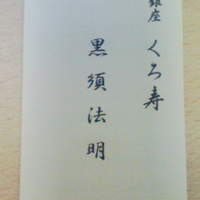 銀座 くろ寿
黒須法明